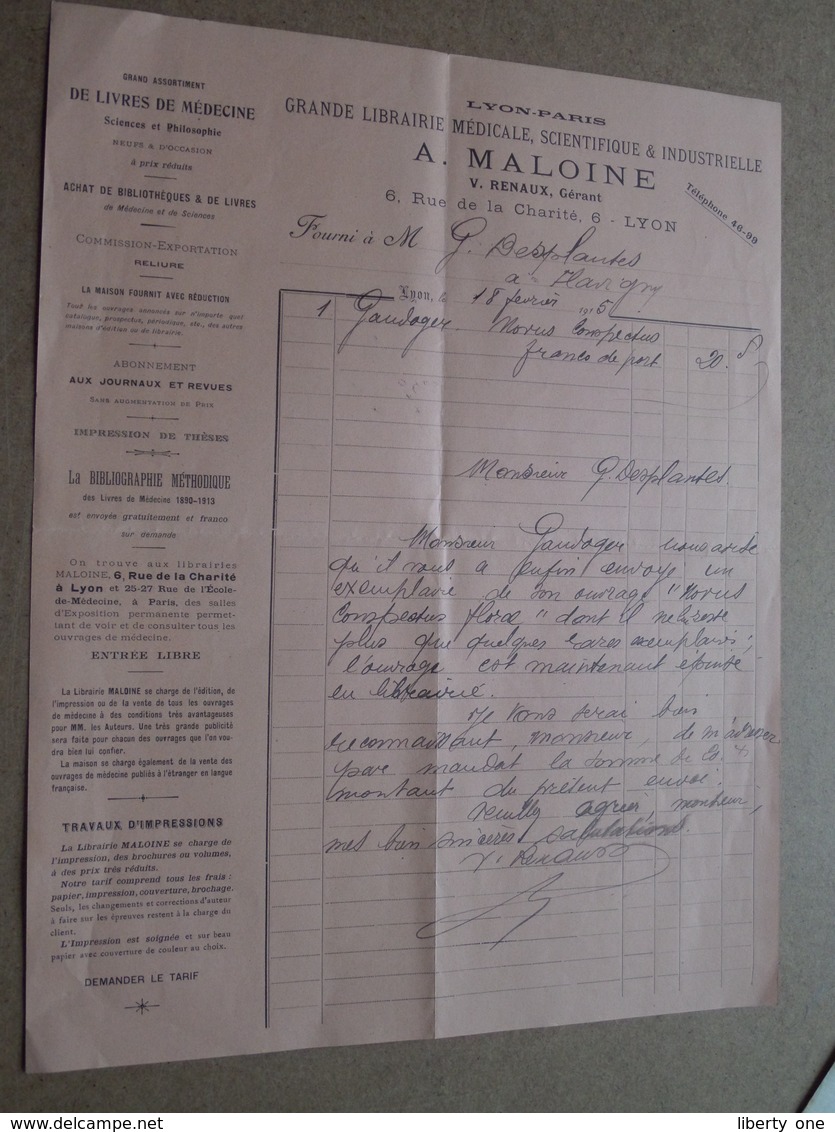 GRAND ASSORTIMENT
DE LIVRES DE MÉDECINE
Sciences et Philosophie
NEUFS & D'OCCASION
à prix réduits
ACHAT DE BIBLIOTHÈQUES & DE LIVRES
de Médecine et de Sciences
COMMISSION-EXPORTATION
RELIURE
LA MAISON FOURNIT AVEC RÉDUCTION
Tous les ouvrages annoncés sur n'importe quel
catalogue, prospectus, périodique, etc., des autres
maisons d'édition ou de librairie.
ABONNEMENT
AUX JOURNAUX ET REVUES
SANS AUGMENTATION DE PRIX
IMPRESSION DE THÈSES
La BIBLIOGRAPHIE MÉTHODIQUE
des Livres de Médecine 1890-1913
est envoyée gratuitement et franco
sur demande
On trouve aux librairies
MALOINE, 6, Rue de la Charité
à Lyon et 25-27 Rue de l'École-
de-Médecine, à Paris, des salles
d'Exposition permanente permet-
tant de voir et de consulter tous les
ouvrages de médecine.
ENTRÉE LIBRE
La Librairie MALOINE se charge de l'édition, de
l'impression ou de la vente de tous les ouvrages
de médecine à des conditions très avantageuses
pour MM. les Auteurs. Une très grande publicité
sera faite pour chacun des ouvrages que l'on vou-
dra bien lui confier.
La maison se charge également de la vente des
ouvrages de médecine publiés à l'étranger en langue
française.
TRAVAUX D'IMPRESSIONS
La Librairie MALOINE se charge de
l'impression, des brochures ou volumes,
à des prix très réduits.
Notre tarif comprend tous les frais :
papier, impression, couverture, brochage.
Seuls, les changements et corrections d'auteur
à faire sur les épreuves restent à la charge du
client.
L'Impression est soignée et sur beau
papier avec couverture de couleur au choix.
DEMANDER LE TARIF
LYON-PARIS
GRANDE LIBRAIRIE MÉDICALE, SCIENTIFIQUE & INDUSTRIELLE
A. MALOINE
V. RENAUX, Gérant
6, Rue de la Charité, 6 - LYON
Téléphone 46-99
Fourni à M G. Desplantes
à Flavigny
Lyon, le 18 février 1915
1 Gandoger. Novus Conspectus
franco de port 20.
Monsieur G. Desplantes.
Monsieur Gandoger nous avise
qu'il vous a enfin envoyé un
exemplaire de son ouvrage "Novus
Conspectus florae" dont il ne reste
plus que quelques rares exemplaires;
l'ouvrage est maintenant épuisé
en librairie.
Je vous serai bien
reconnaissant, monsieur, de m'adresser
par mandat la somme de
montant du présent envoi.
Veuillez agréer, monsieur,
mes bien sincères salutations.
V. Renaux
liberty one